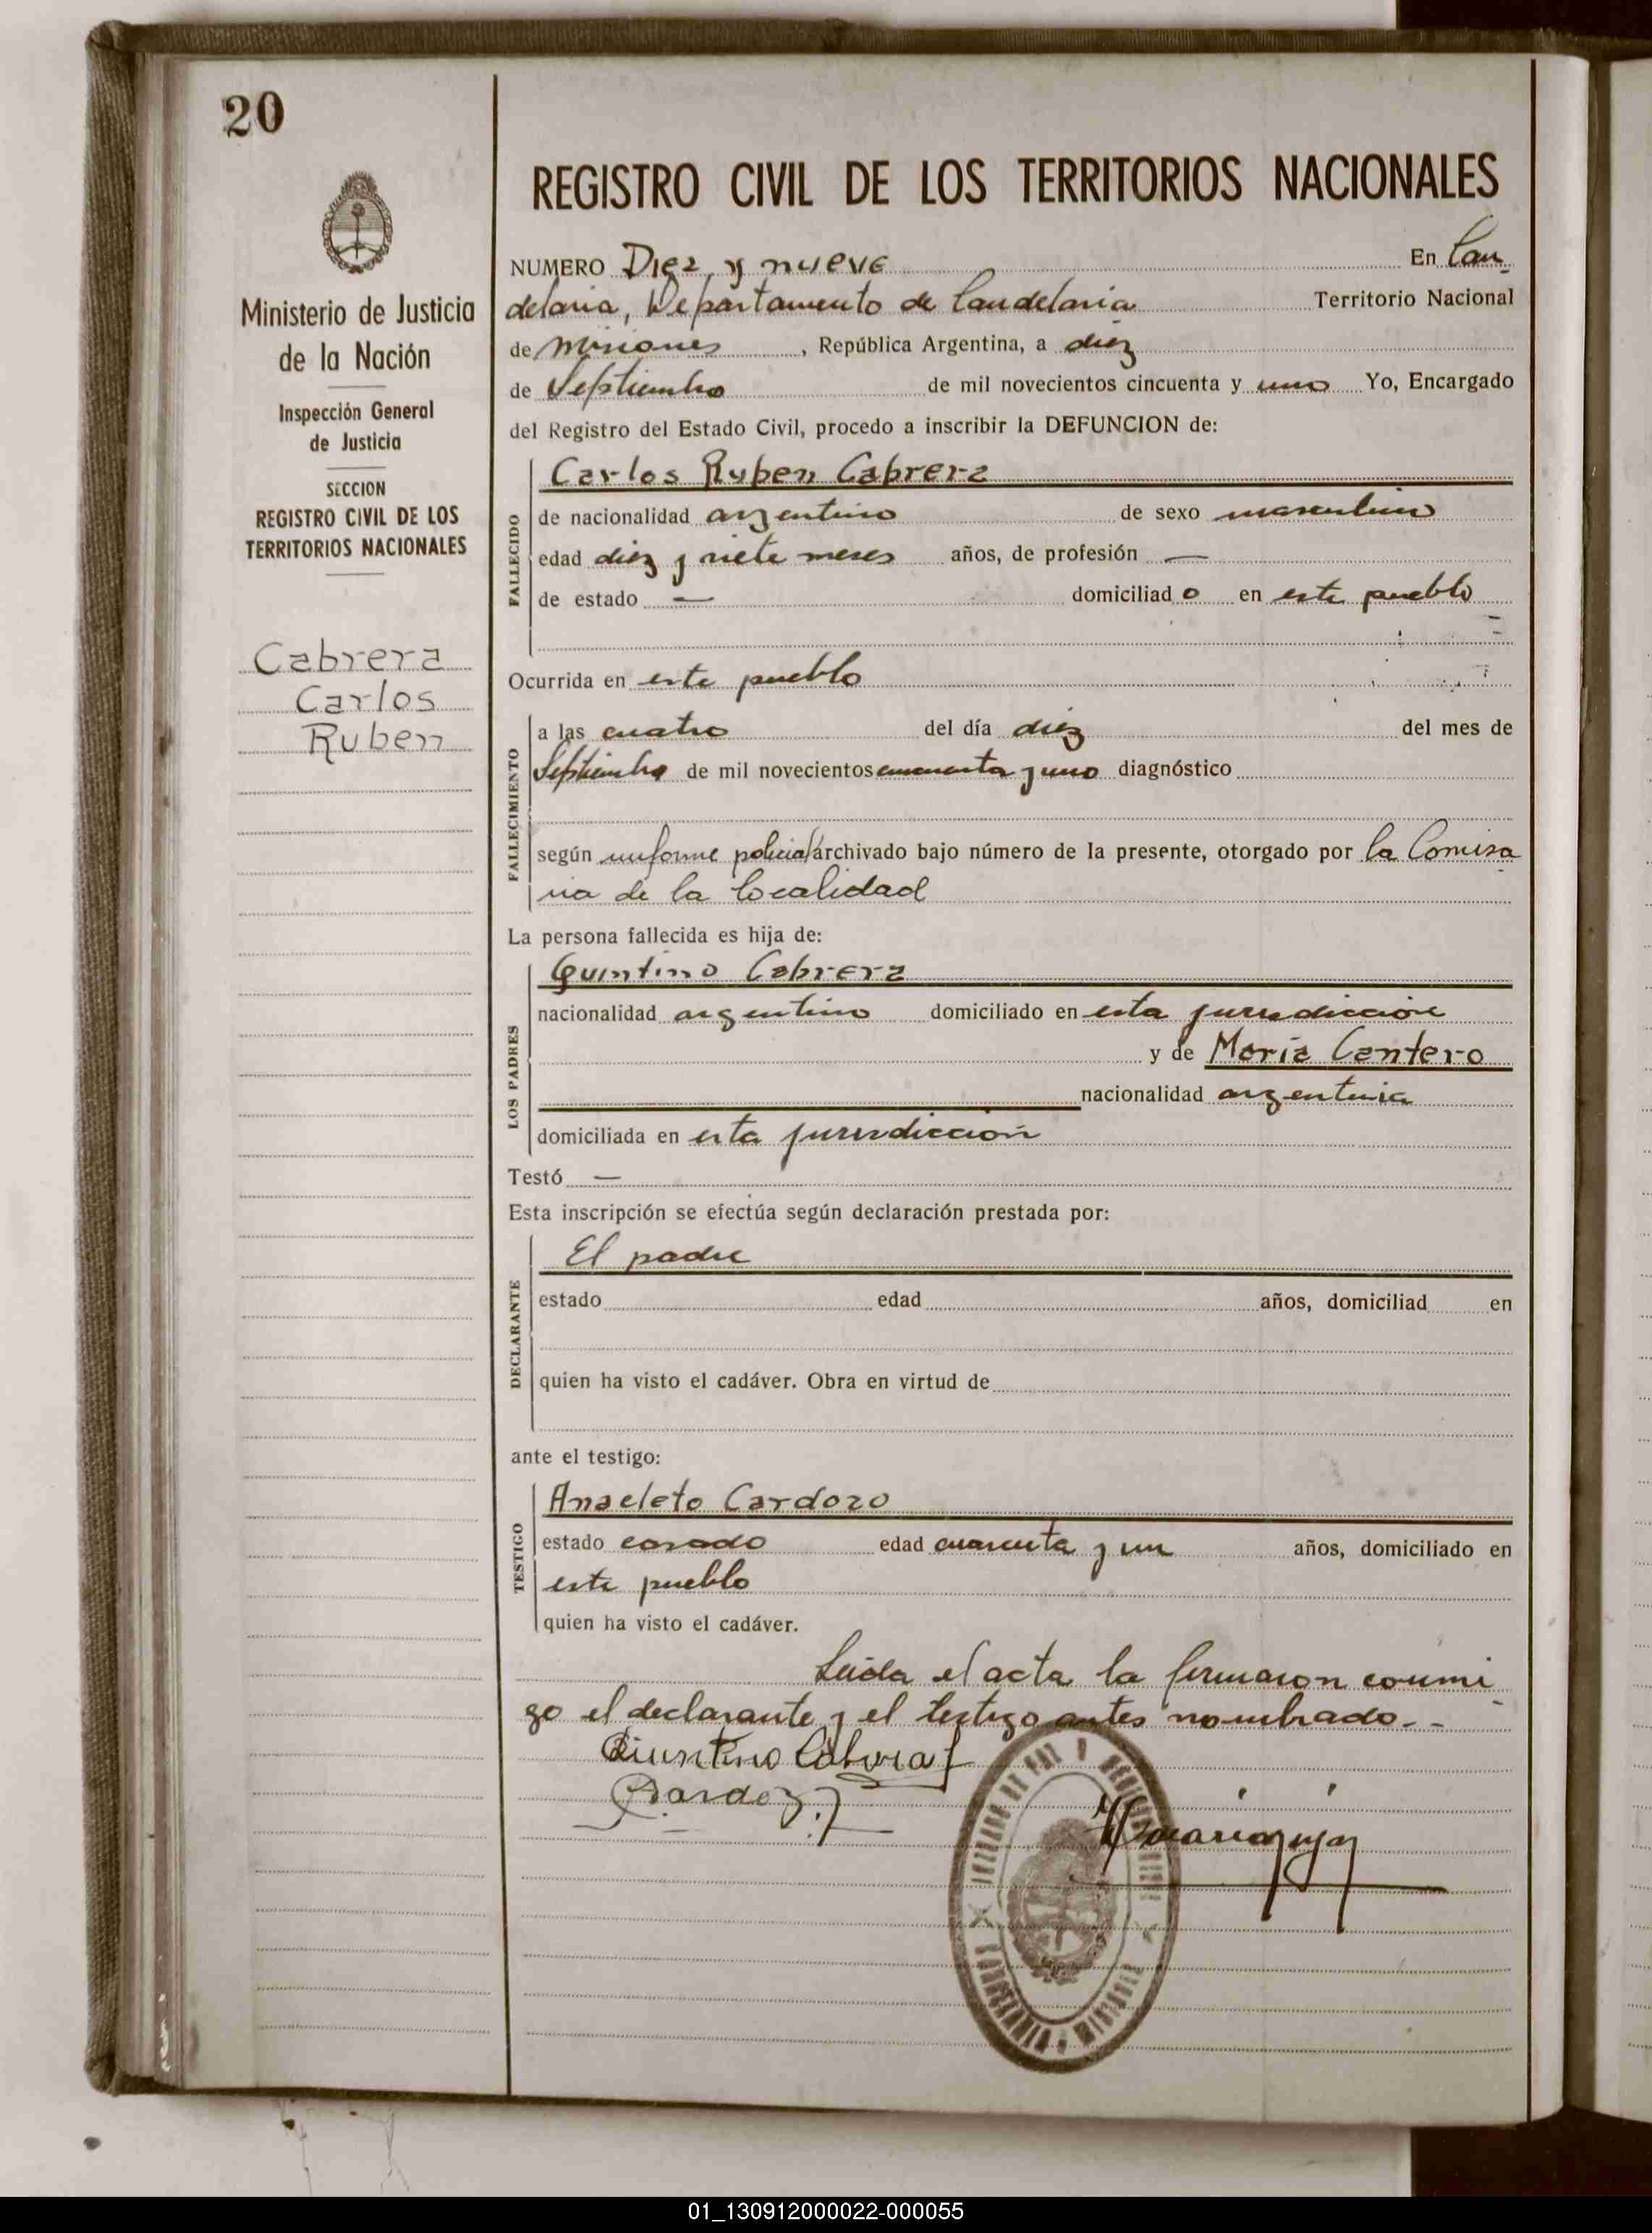 20
REGISTRO CIVIL DE LOS TERRITORIOS NACIONALES
Ministerio de Justicia
de la Nación
Inspección General
de Justicia
SECCION
REGISTRO CIVIL DE LOS
TERRITORIOS NACIONALES
Cabrera
Carlos
Ruben
NUMERO Diez y nueve En Can-
delaria, Departamento de Candelaria Territorio Nacional
de Misiones, República Argentina, a diez
de Septiembre de mil novecientos cincuenta y uno Yo, Encargado
del Registro del Estado Civil, procedo a inscribir la DEFUNCION de:
FALLECIDO
Carlos Ruben Cabrera
de nacionalidad argentino de sexo masculino
edad diez y siete meses años, de profesión —
de estado — domiciliado en este pueblo
Ocurrida en este pueblo
FALLECIMIENTO
a las cuatro del día diez del mes de
Septiembre de mil novecientos cincuenta y uno diagnóstico
según informe policial archivado bajo número de la presente, otorgado por la Comisa
ria de la localidad
La persona fallecida es hija de:
LOS PADRES
Quintino Cabrera
nacionalidad argentino domiciliado en esta jurisdicción
y de María Cantero
nacionalidad argentina
domiciliada en esta jurisdicción
Testó —
Esta inscripción se efectúa según declaración prestada por:
DECLARANTE
El padre
estado edad años, domiciliad en
quien ha visto el cadáver. Obra en virtud de
ante el testigo:
TESTIGO
Anacleto Cardozo
estado casado edad cuarenta y un años, domiciliado en
este pueblo
quien ha visto el cadáver.
Leída el acta la firmaron conmi
go el declarante y el testigo antes nombrado.-
Quintino Cabrera
Cardozo
01_130912000022-000055